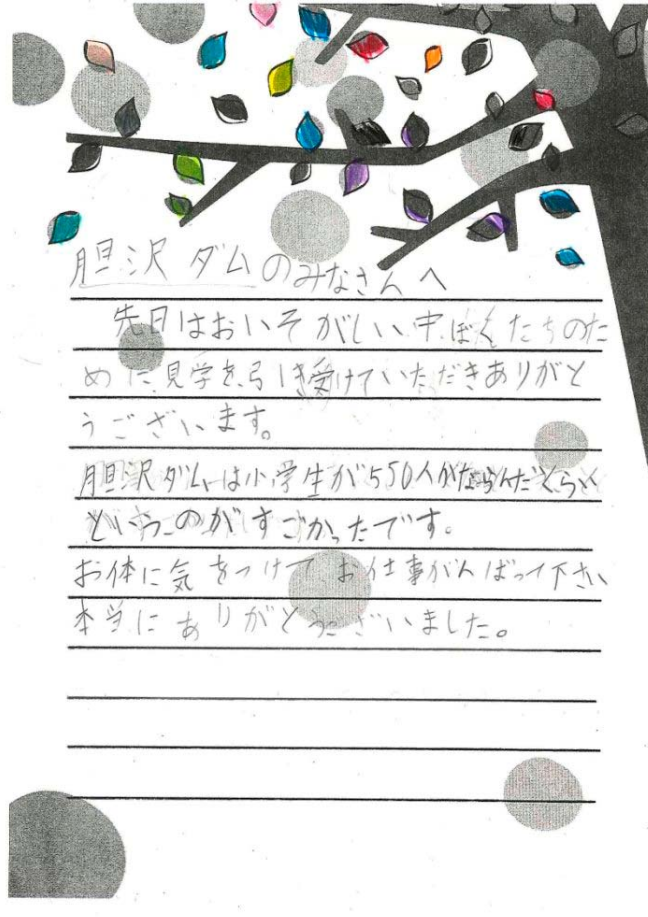 胆沢ダムのみなさんへ
先日はおいそがしい中、ぼくたちのた
めに、見学を、引き受けていただきありがと
うございます。
胆沢ダムは小学生が550人がならんだくらい
というのがすごかったです。
お体に気をつけてお仕事がんばって下さい
本当にありがとうございました。